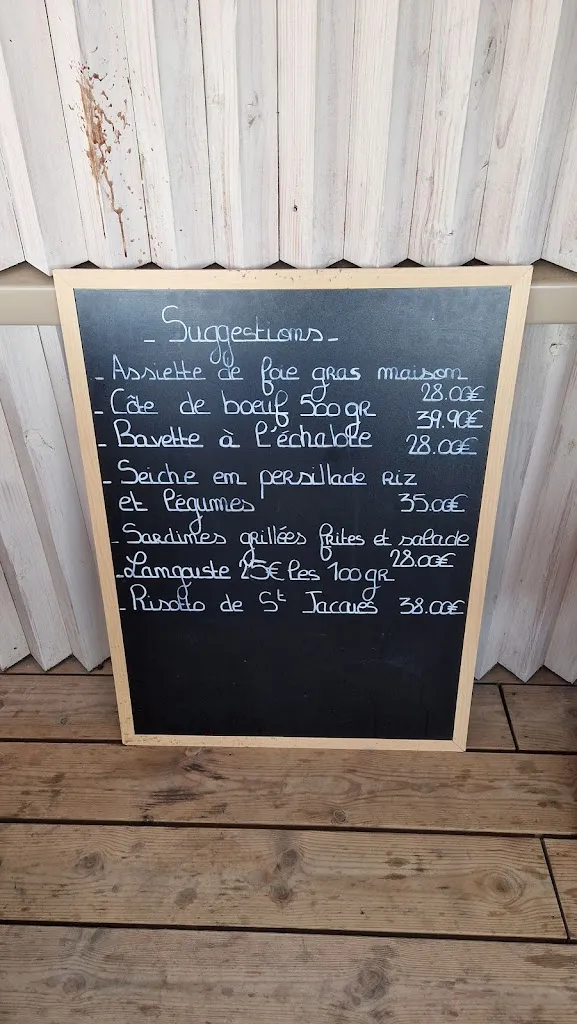 - Suggestions -
- Assiette de foie gras maison
28.00€
- Côte de boeuf 500gr 39.90€
- Bavette à l'échalote 28.00€
- Seiche en persillade riz
et légumes 35.00€
- Sardines grillées frites et salade
28.00€
- Langouste 25€ les 100gr
- Risotto de St Jacques 38.00€